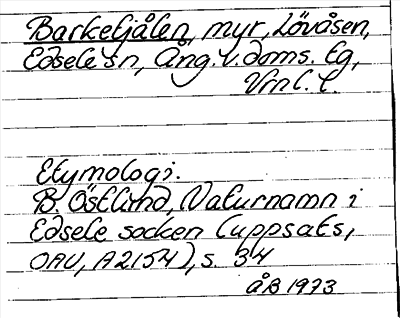 Barketjålen, myr, Lövåsen,
Edsele sn, Ång. v. doms. Eg,
Vrnl. l.
Etymologi.
B. Östlund, Naturnamn i
Edsele socken (uppsats,
OAU, A2154), s. 34
ÅB 1973